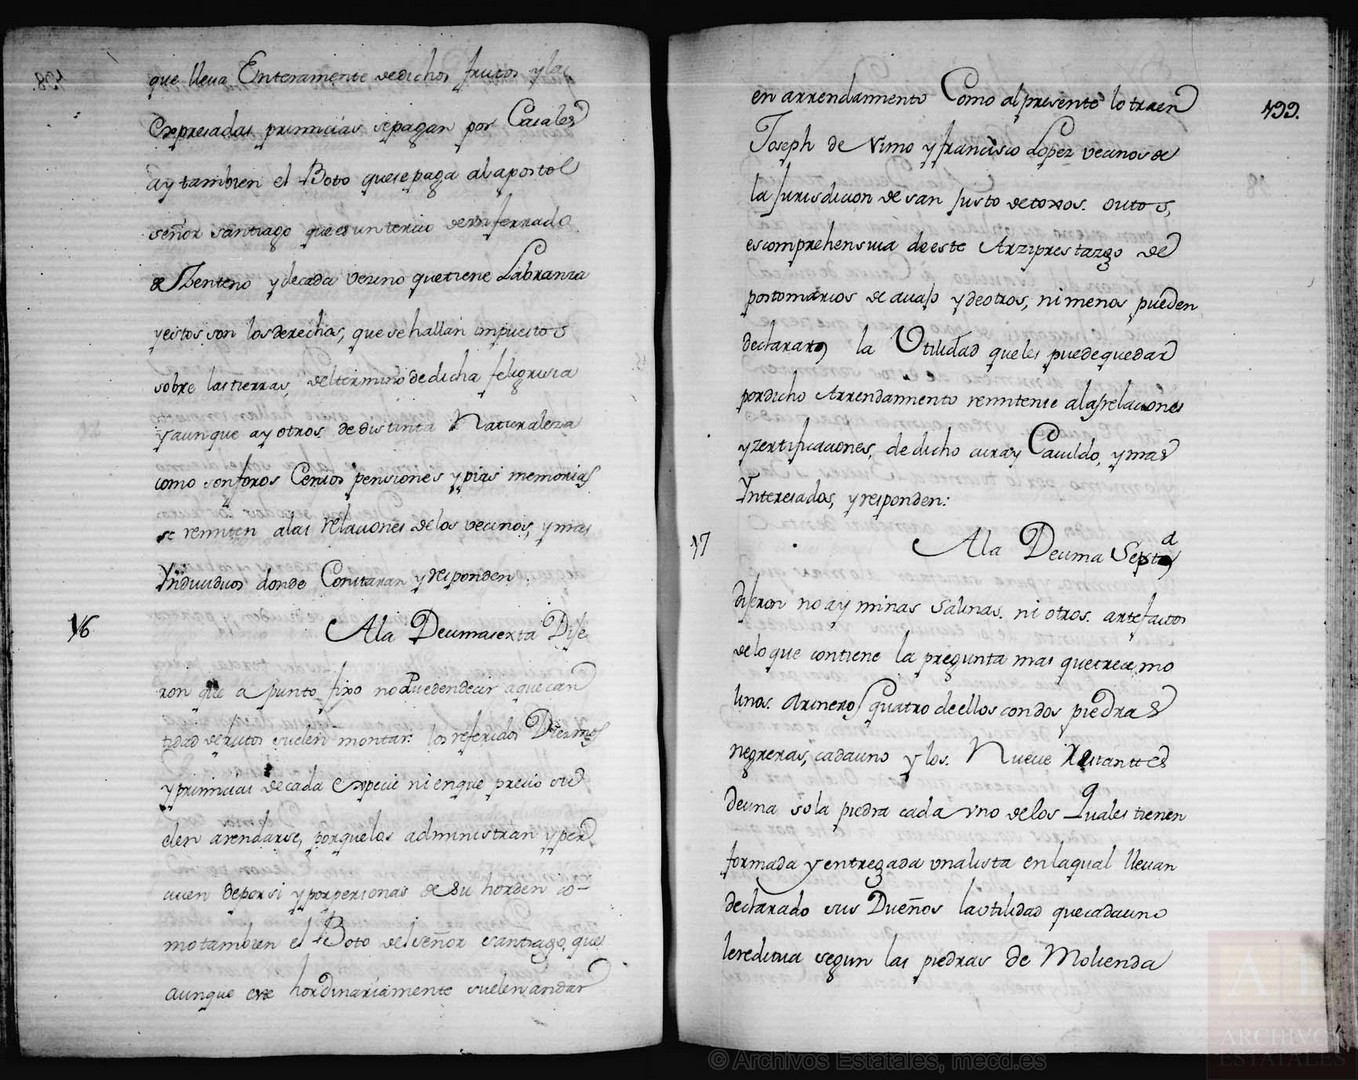 que lleua Enteramente dedichos frutos ylas
Expresadas primicias sepagan por Casales
ay tambien el Boto quesepaga al apostol
señor santiago que es un tercio de un ferrado
de Zenteno ydecada vecino quetiene Labranza
yestos son losderechos, que se hallan impuestos
sobre lastierras deltermino dedicha feligresia
yaunque ay otros de distinta Naturaleza
como son foros Censos pensiones ypias memorias
se remiten alas relaciones delos vecinos, ymas
Yndiuiduos donde Constaran yresponden.
16
Ala Decimasexta Dije
ron que a punto fixo nopuedendecir aquecan
tidad defrutos suelen montar los referidos Diezmos
yprimicias decada expecie ni enque precio sue
len arendarse, porquelos administran yper
ciuen deporsi yporpersonas de su horden co-
motambien el Boto delseñor santiago, que
aunque este hordinariamente suelen andar
499.
en arrendamiento Como alpresente lo traen
Joseph de Vimo yfrancisco Lopez vecinos de
la Jurisdicion desan Justo detoxos. outos,
escomprehensiua deeste Arziprestazgo de
postomarcos de auajo ydeotros, ni menos pueden
declarar la Utilidad queles puedequedar
pordicho Arrendamiento remitense alasrelaciones
yzertificaciones, dedicho cura y Cauildo, ymas
Ynteresados, yresponden:
17
Ala Decima Septa
dijeron no ay minas salinas. ni otros. artefactos
delo que contiene la pregunta mas quetrece mo
linos. arineros quatro deellos condos piedras
negreras, cadauno ylos. Nueue Restanttes
deuna sola piedra cada vno delos Quales tienen
formada yentregada vnalista enlaqual lleuan
declarado sus Dueños lavtilidad quecadauno
lereditua segun las piedras de Molienda
© Archivos Estatales, mecd.es
ARCHIVOS
ESTATALES